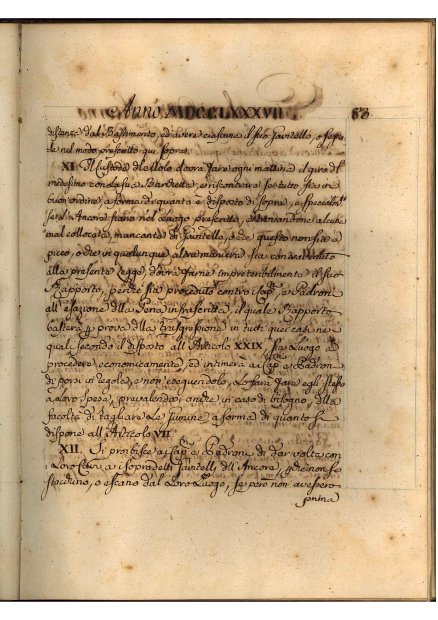 Anno MDCCLXXXVII 83
distanze dal Bastimento, ed avere ciascuna il suo Gavitello, o segna
le nel modo prescritto qui sopra.
XI. Il Custode del Molo dovrà fare ogni mattina il giro del
medesimo con la sua Barchetta, e riscontrare se tutto sia in
buon ordine, a forma di quanto è disposto di sopra, e specialm.te
se le Ancore siano nel luogo prescritto, e trovandone alcune
mal collocate, mancanti di Gavitello, o che questo non sia a
picco, o che in qualunque altra maniera sia contravvenuto
alla presente Legge, dovrà farne impreteribilmente il suo
Rapporto, perchè sia proceduto contro i Cap.ni, o Padroni
all'esazione della Pena infrascritta, il quale Rapporto
basterà p prova della trasgressione in tutti quei casi ne
quali secondo il disposto all'Articolo XXIX sia Luogo a
procedere economicamente, ed intimerà ai Cap.ni e Padroni
di porsi in regola, e non eseguendolo, Lo farà fare egli stesso
a Loro spese, prevalendosi anche in caso di bisogno, della
facoltà di tagliare Le Fumine a forma di quanto si
dispone all'Articolo VII.
XII. Si proibisce ai Cap.ni e Padroni di dar volta con
i Loro Cavi a i sopradetti Gavitelli dell'Ancore, perchè non si
 o escano dal Loro Luogo, se però non avessero